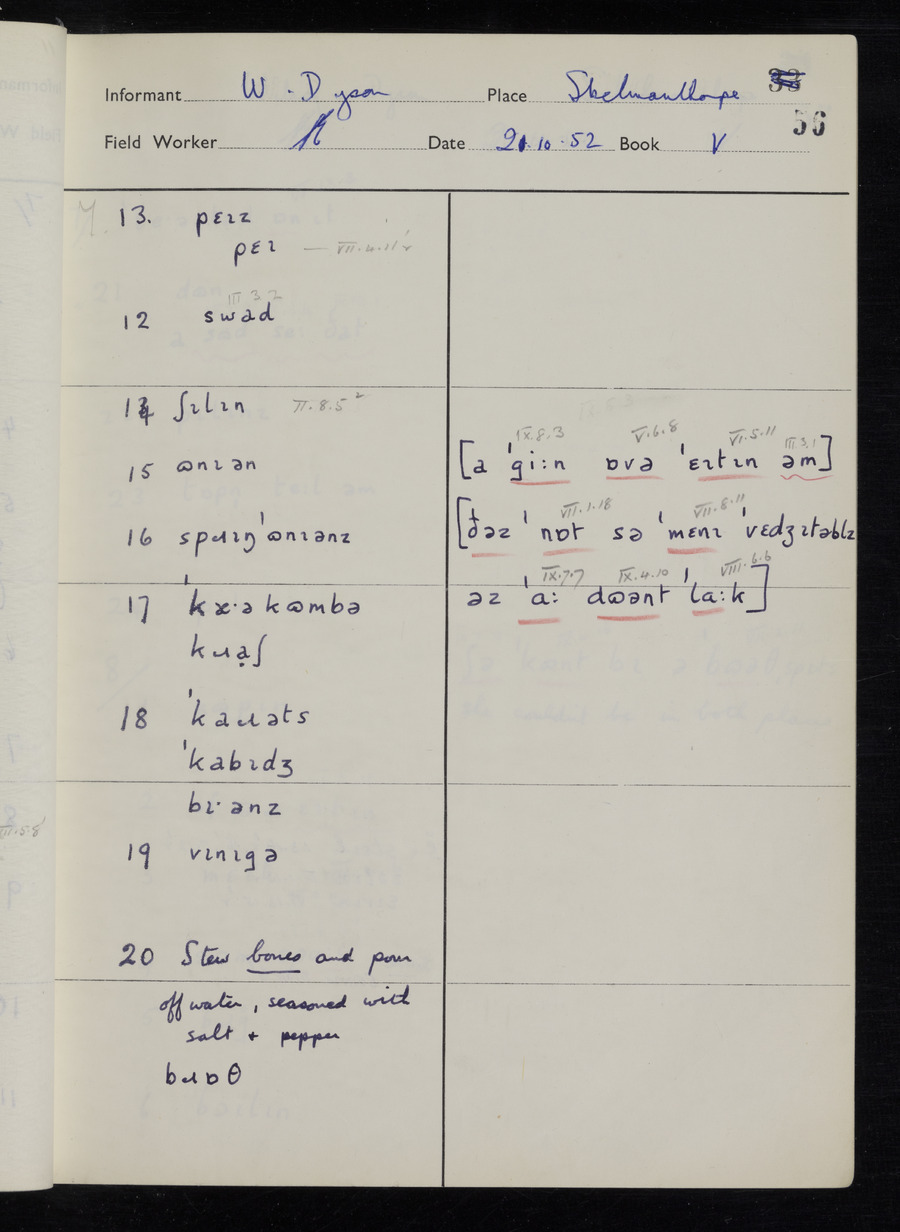 Informant W. Dyson Place Skelmanthorpe
56
Field Worker Date 21.10.52 Book V
13. pɛɪz
pɛɪ — VII.4.11
III 3 2
12 swad
14 ʃɪlɪn II.8.5
15 ɷnɪən
16 spɹɪŋˈɷnɪənz
17 ˈkɷmbə
kɹạʃ
18 ˈkaɹəts
ˈkabɪdʒ
bɪˑənz
19 vɪnɪgə
20 Stew bones and pour
off water, seasoned with
salt + pepper
bɹɒθ
IX.8.3 V.6.8 VI.5.11 III.3.1
[a ˈgiːn ɒvə ˈɛɪtɪn əm]
VII.1.18 VII.8.11
[ðəz ˈnɒt sə ˈmɛnɪ ˈvɛdʒɪtəblz
IX.7.7 IX.4.10 VIII.6.6
əz ˈaː dɷənt ˈlaːk]